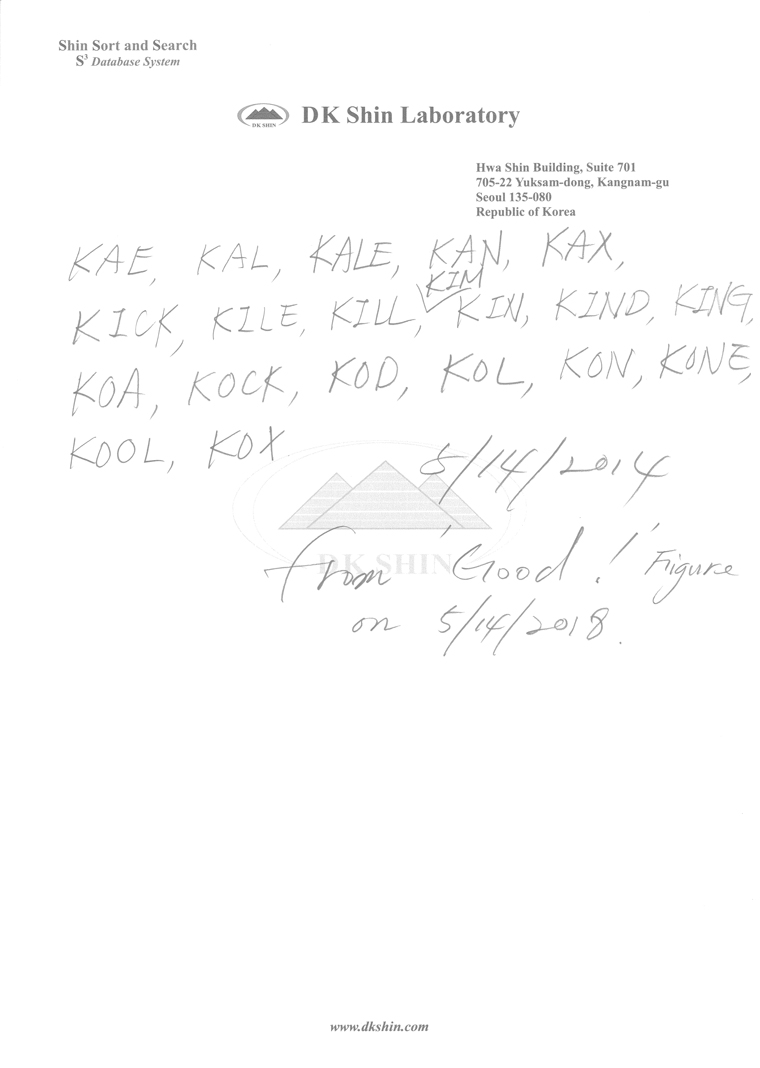 Shin Sort and Search
S³ Database System
DK SHIN
DK Shin Laboratory
Hwa Shin Building, Suite 701
705-22 Yuksam-dong, Kangnam-gu
Seoul 135-080
Republic of Korea
KAE, KAL, KALE, KAN, KAX,
KIM
KICK, KILE, KILL, KIN, KIND, KING,
KOA, KOCK, KOD, KOL, KON, KONE,
KOOL, KOX
5/14/2014
DK SHIN
from 'Good!' Figure
on 5/14/2018.
www.dkshin.com